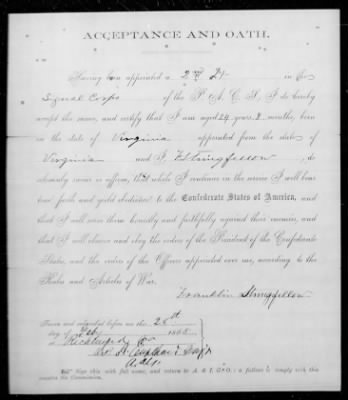 ACCEPTANCE AND OATH.
Having been appointed a 2nd Lt in the
Signal Corps of the P. A. C. S, I do hereby
accept the same, and certify that I am aged 24 years, 2 months, born
in the state of Virginia appointed from the state of
Virginia and I, F Stringfellow, do
solemnly swear or affirm, that while I continue in the service I will bear
true faith and yield obedience to the Confederate States of America, and
that I will serve them honestly and faithfully against their enemies, and
that I will observe and obey the orders of the President of the Confederate
States, and the orders of the Officers appointed over me, according to the
Rules and Articles of War.
Franklin Stringfellow
Sworn and subscribed before me this 20th
day of Feb 1865
at Richmond Va
Sign this with full name, and return to A. & I. GEO.: a failure to comply with this
vacates the Commission.